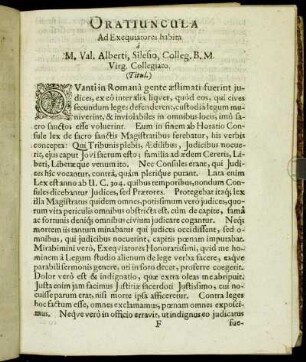 ORATIUNCULA
Ad Exequiatores habita
à
M. Val. Alberti, Silesio, Colleg. B. M.
Virg. Collegiato.
(Titul.)
QVanti in Romanâ gente æstimati fuerint judices, ex eô intersia liquet, quòd eos, qui cives
secundum leges defenderent, custodiâ legum muniverint, & inviolabiles in omnibus locis, imò
sacro sanctos esse voluerint. Eum in finem ab Horatio Consule lex de sacro sanctis Magistratibus ferebatur, his verbis
concepta: Qui Tribunis plebis, Ædilibus, Judicibus nocuerit, ejus caput Jovi sacrum esto; familia ad ædem Cereris, Liberi, Liberæque venum ito. Nec Consules erant, qui Judices hîc vocantur, contrà, quàm plerique putant. Lata enim
Lex est anno ab U. C. 304. quibus temporibus, nondum Consules dicebantur Judices, sed Prætores. Protegebat itaq; lex
illa Magistratus quidem omnes potissimùm verò judices, quorum vita periculis omnibus objecta est, cùm de capite, famâ
ac fortunis denique omnibus civium judicare cogantur. Neque
mortem iis tantum minabatur qui judices occidissent, sed omnibus, qui judicibus nocuerint, capitis pœnam imputabat.
Mirabimini verò, Exequiatores Honoratissimi, quid me hominem à Legum studio alienum de lege verba facere, eaque
parabili sermonis genere, oti in foro decet, proferre congerit.
Dolor verò est & indignatio, quæ extra oleas me abripuit.
Justa enim jam facimus Justitiæ sacerdoti Justissimo, cui nocuisse parum eras, nisi morte ipsa afficeretur. Contra leges
hoc factum esse, omnes exclamamus, pœnam omnes exposcimus. Neque verò in officio erravit, ut indignus eo judicatus
F
fue-